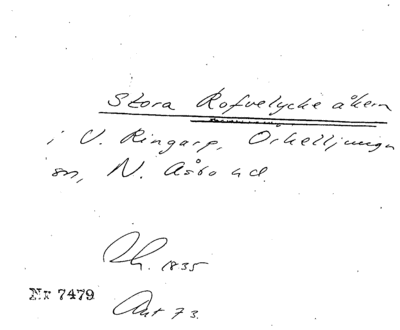 Stora Rofvelycke åkern
i V. Ringarp, Örkelljunga
sn, N. Åsbo hd.
Rh. 1835
Nr 7479
Akt 73.